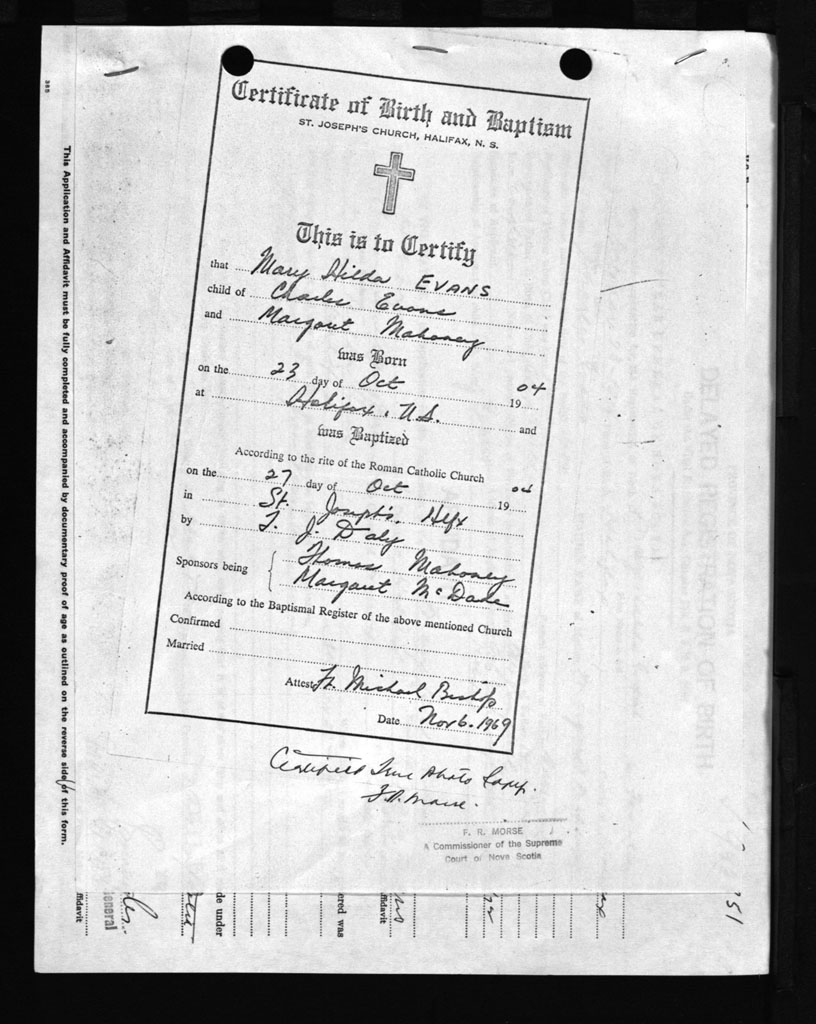 Certificate of Birth and Baptism
ST. JOSEPH'S CHURCH, HALIFAX, N. S.
This is to Certify
that Mary Hilda EVANS
child of Charles Evans
and Margaret Mahoney
was Born
on the 23 day of Oct 1904
at Halifax, N.S. and
was Baptized
According to the rite of the Roman Catholic Church
on the 27 day of Oct 1904
in St. Joseph's, Hlfx
by T. J. Daly
Sponsors being { Thomas Mahoney
Margaret McDade
According to the Baptismal Register of the above mentioned Church
Confirmed
Married
Attest Fr. Michael Bishop
Date Nov 6. 1969
Certified True Photo Copy.
F. R. Morse.
F. R. MORSE
A Commissioner of the Supreme
Court of Nova Scotia
This Application and Affidavit must be fully completed and accompanied by documentary proof of age as outlined on the reverse side of this form.
385
ffidavit
General
de under
ered was
ffidavit
72
751